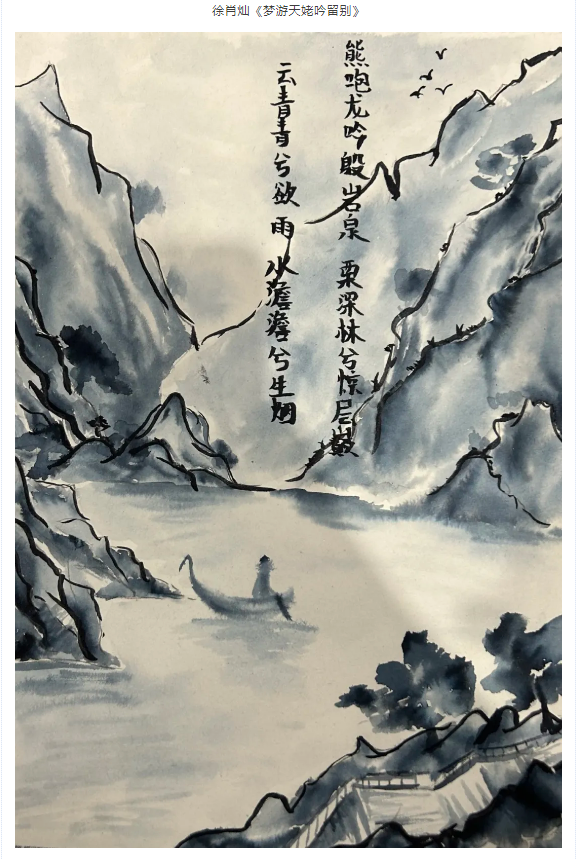 徐肖灿《梦游天姥吟留别》
熊咆龙吟殷岩泉 栗深林兮惊层巅
云青青兮欲雨 水澹澹兮生烟